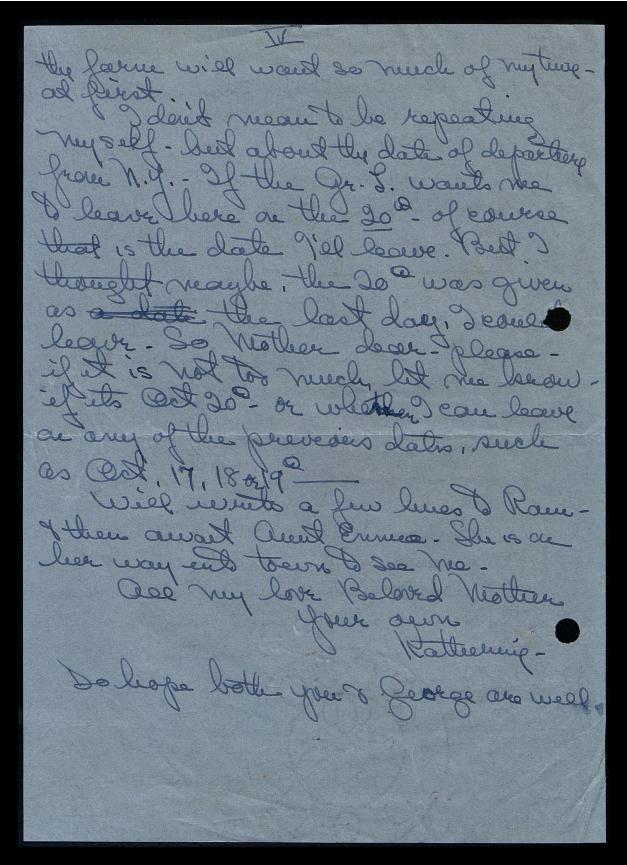 IV
the farm will want so much of my time -
at first.
I don't mean to be repeating
myself - but about the date of departure
from N.Y. - If the Gr. L. wants me
to leave here on the 20th - of course
that is the date I'll leave. But I
thought maybe, the 20th was given
as a date the last day, I could
leave. So Mother dear - please -
if it is not too much, let me know -
if its Oct 20th - or whether I can leave
on any of the previous dates, such
as Oct. 17, 18 or 19th
Will write a few lines to Ram -
& then await Aunt Emma. She is on
her way into town to see me -
All my love Beloved Mother
Your own
Katherine -
Do hope both you & George are well.